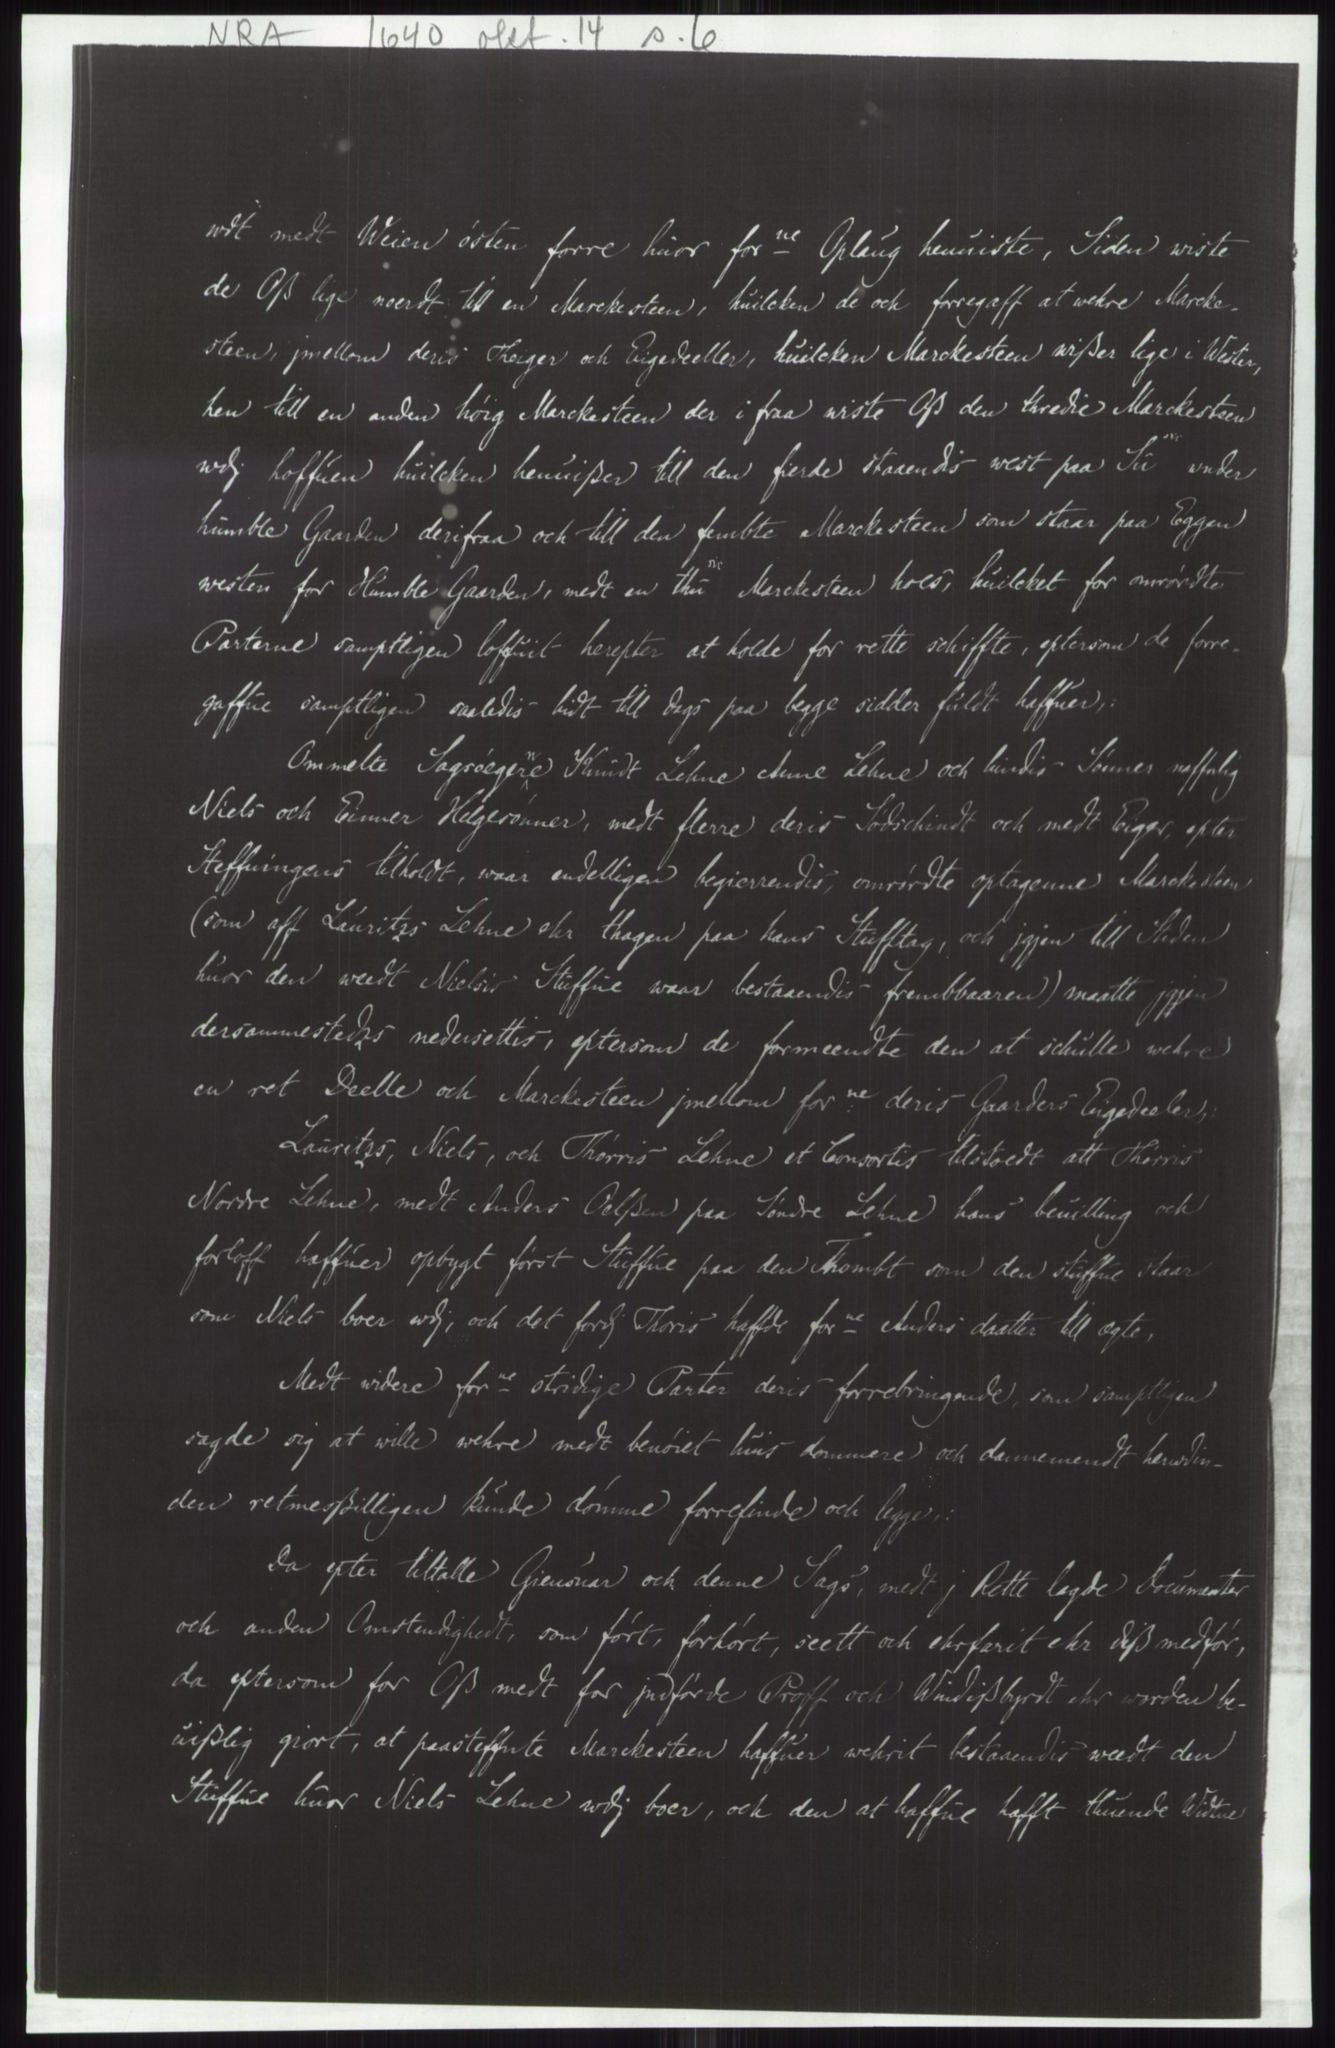 NRA 1640 okt. 14 s. 6
wdt medt Weien östen forre huor forne Oplaug henuiste, Siden wiste
de Oß lige noerdt till en Marckesteen, huilcken de och forregaff at wehre Marcke-
steen, jmellom deris Theiger och Eigedeeller, huilcken Marckesteen wißer lige i Wester,
hen till en anden höig Marckesteen der i fraa wiste Oß den thredie Marckesteen
wdj hoffuen huilcken henuißer till den fierde staaendis west paa Su sic wnder
humble Gaarden derifraa och till den fembte Marckesteen som staar paa Eggen
westen for Humble Gaarden, medt en thu sic Marckesteen hoes, huilcket for omrördte
Parterne samptligen loffuit herepter at holde for rette schiffte, eptersom de forre-
gaffue samptligen saaledis hidt till dags paa begge sidder fuldt haffuer,:
Ommelte Sagsöegere ne Knudt Lehne Anne Lehne och hindis Sönner naffnlig
Niels och Einner Helgesönner, medt flerre deris Södschindt och medt Eiger, epter
Steffningens tilholdt, waar endelligen begierrendis, omrördte optagenne Marckesteen
(som aff Lauritzs Lehne ehr thagen paa hans Stufftag, och jgjen till Steden
huor den weedt Nielsis Stuffue waar bestaaendis frembbaaren) maatte jgjen
dersammestedzs nedersettis, eptersom de formeendte den at schulle wehre
en ret Deelle och Marckesteen jmellom forne deris Gaarders Eigedeeler,:
Lauritzs, Niels, och Thorris Lehne et Consortis tilstoedt att Thorris
Nordre Lehne, medt Anders Oelßen paa Söndre Lehne hans beuilling och
forloff haffuer opbygt först Stuffue paa den Thombt som den stuffue staar
som Niels boer wdj, och det fordj Thoris haffde forne Anders daatter till egte.
Medt widere forne stridige Parter deris forrebringende, som samptligen
sagde sig at wille wehre medt benöiet huis dommere och dannemendt herwdin-
den retmeßilligen kunde dömme forrefinde och legge,:
Da epter tiltalle Giensuar och denne Sags, medt j Rette lagde Documenter
och anden Omstendighedt, som fört, forhört, seett och ehrfarit ehr diß medför,
da eptersom for Oß medt for jndförde Proff och Windißbyrdt ehr worden be-
uißlig giort, at paasteffnte Marckesteen haffuer wehrit bestaaendis weedt den
Stuffue huor Niels Lehne wdj boer, och den at haffue hafft thuende Widtne